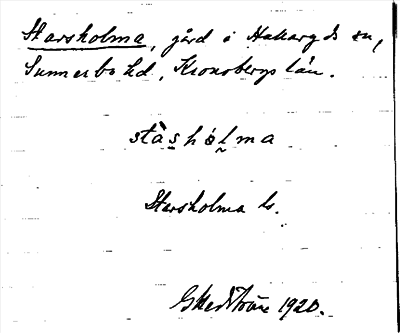 Starsholma, gård i Hallaryds sn,
Sunnerbo hd., Kronobergs län.
stàshólma
Starsholma ls.
GHedström 1920.